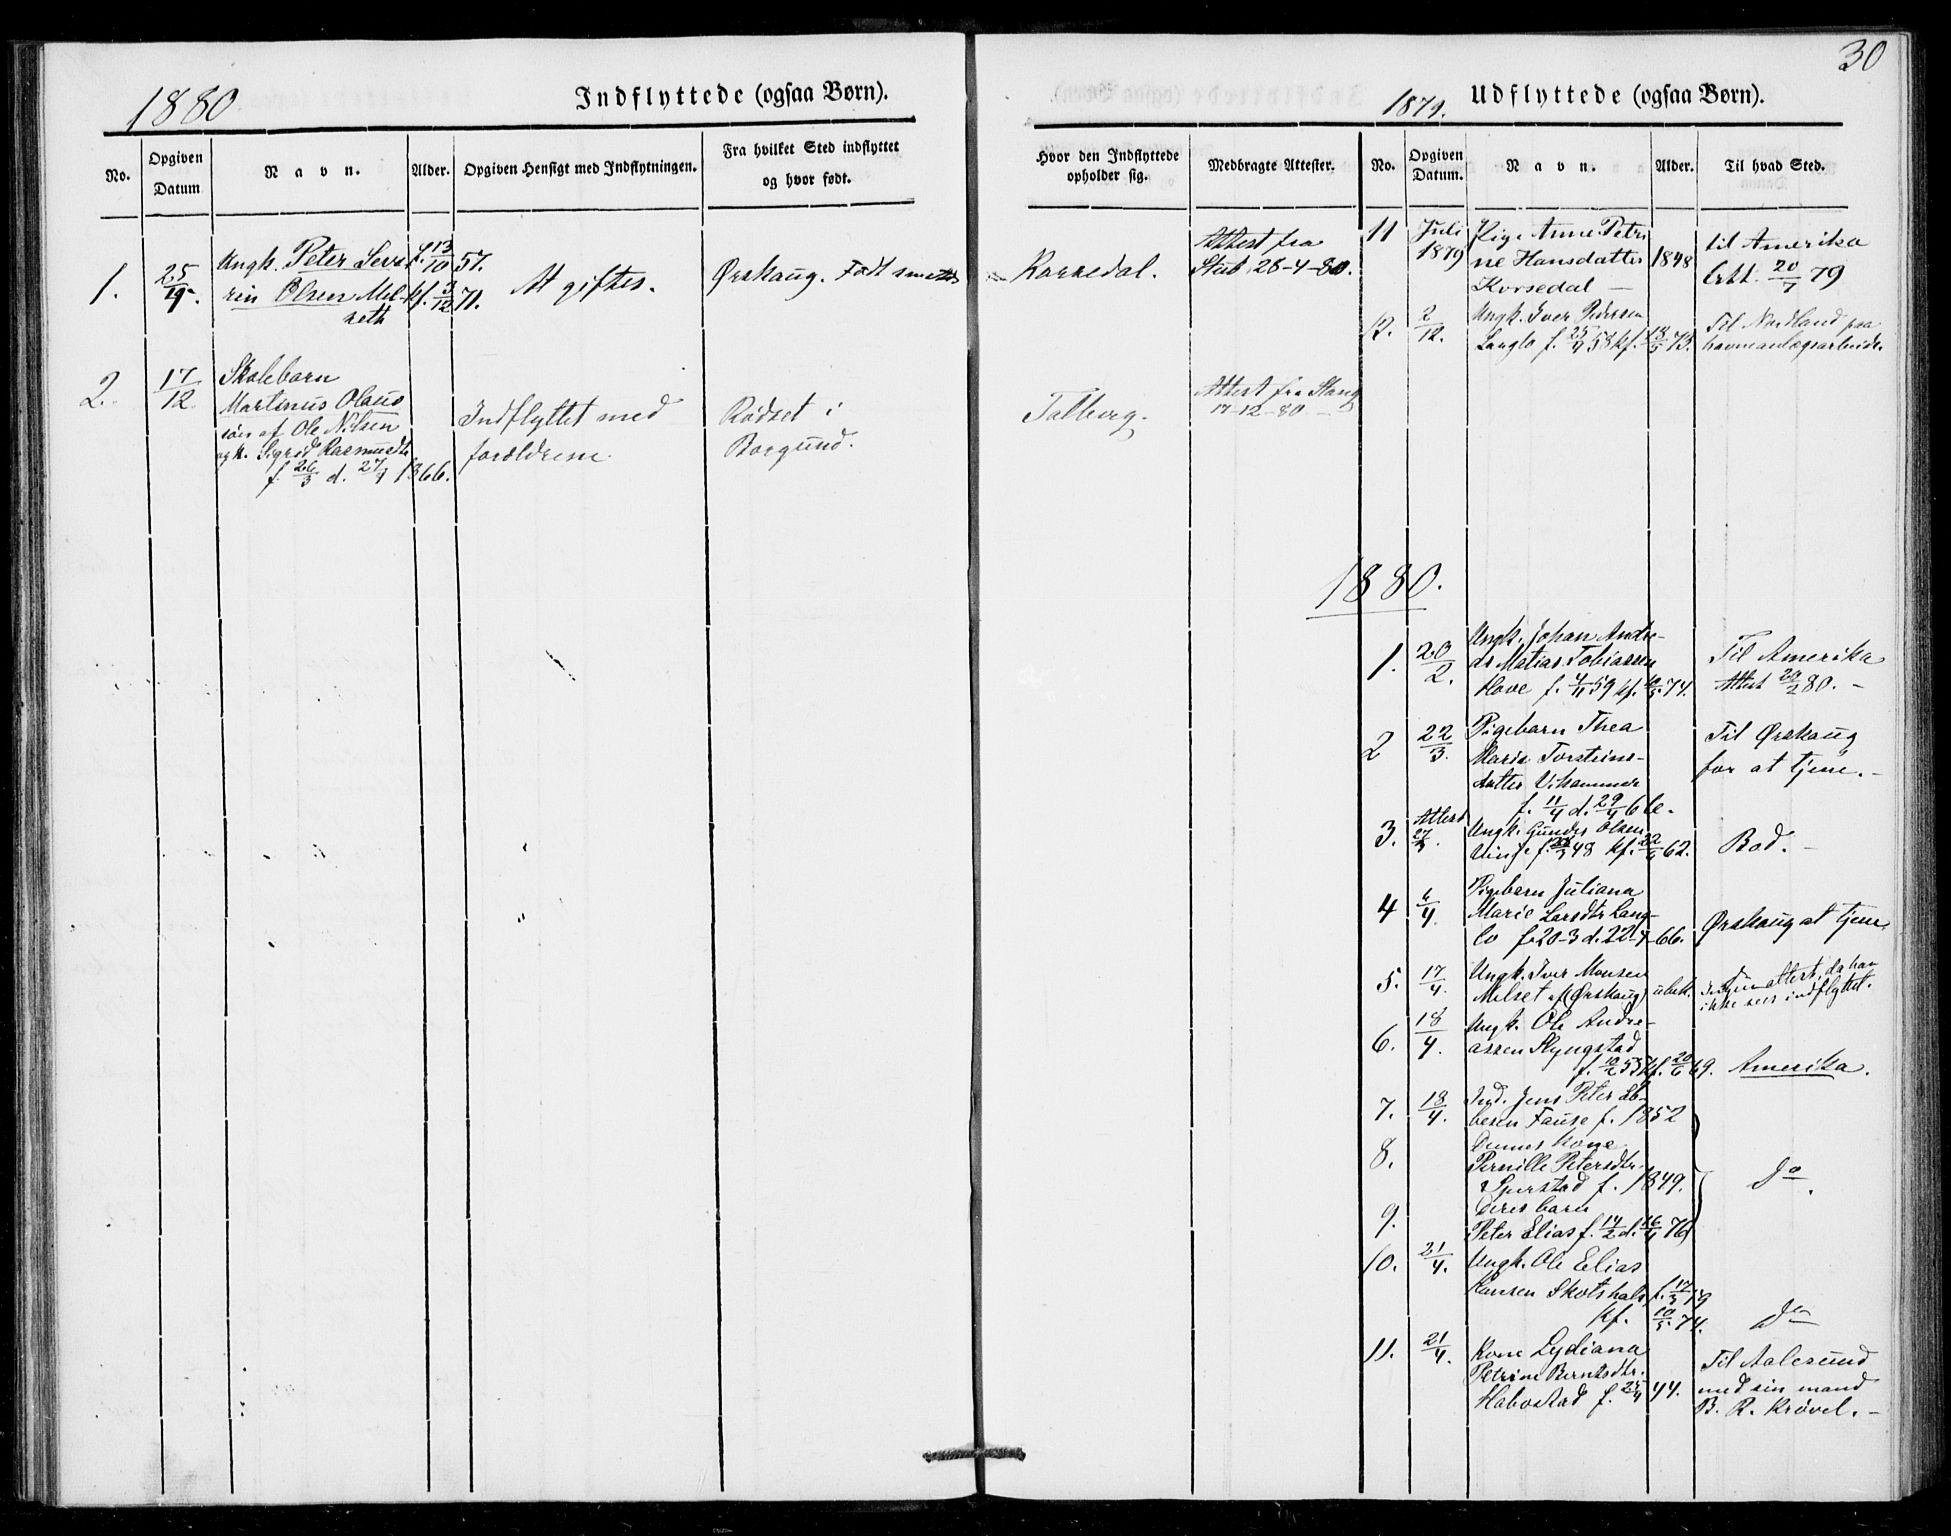 30
1880
Indflyttede (ogsaa Børn).
No.
Opgiven Datum
Navn.
Alder.
Opgiven Hensigt med Indflytningen.
Fra hvilket Sted indflyttet og hvor født.
Hvor den Indflyttede opholder sig.
Medbragte Attester.
1.
25/4.
Ungk. Peter Seve-
rin Olsen Mel-
seth
f. 13/10 57.
kf. 3/12 71.
At giftes.
Ørskaug. Født smstds
Korsedal.
Attest fra
Stub 28-4-80.
2.
17/12.
Skolebarn
Martinus Olaus
søn af Ole Nilsen
og k. Sigrid Rasmusdtr
f. 26/3 d. 27/4 1866.
Indflyttet med
forældrene.
Rødset i
Borgund.
Talberg.
Attest fra Stang
17-12-80.
1879.
Udflyttede (ogsaa Børn).
No.
Opgiven Datum.
Navn.
Alder.
Til hvad Sted.
11
Juli
1879
Pige Anne Petri
ne Hansdatter
Korsedal
1848
til Amerika
Att. 20/7 79
12.
2/12.
Ungk. Iver Pedersen
Langlo f. 25/4 58 kf. 18/5 73.
Til Nordland paa
havneanlægsarbeide.
1880.
1.
20/2.
Ungk. Johan Andre-
as Matias Tobiassen
Hove f. 4/11 59 kf. 10/5 74.
Til Amerika
Attest 20/2 80.
2
22/3.
Pigebarn Thea
Marie Torsteins-
datter Vihammer
f. 11/4 d. 29/4 66.
Til Ørskaug
for at tjene.
3.
Attest
27/3.
Ungk. Gunder Olsen
Vinje f. 48 kf. 22/6 62.
Bod.
4
6/4.
Pigebarn Juliana
Marie Larsdtr Lang-
lo f. 20-3 d. 22-4-66.
Ørskaug at tjene.
5.
17/4.
Ungk. Iver Monsen
Melset af (Ørskaug) ubek.
ingen attest, da han
ikke sees indflyttet.
6.
18/4.
Ungk. Ole Andre-
assen Slyngstad
f. 10/2 53 kf. 20/6 69.
Amerika.
7.
18/4.
Ind. Jens Peter Es-
besen Fause f. 1852
8.
Dennes kone
Pernille Petersdtr.
Sperstad f. 1849.
do.
9.
Deres barn
Peter Elias f. 14/2 d. 16/4 76
10.
21/4.
Ungk. Ole Elias
Hansen Skotshals f. 17/3 19
kf. 10/5. 74.
do
11.
21/4.
Kone Lydiana
Petrine Berntsdtr.
Habostad f. 25/4 44.
Til Aalesund
med sin mand
B. R. Krøvel.